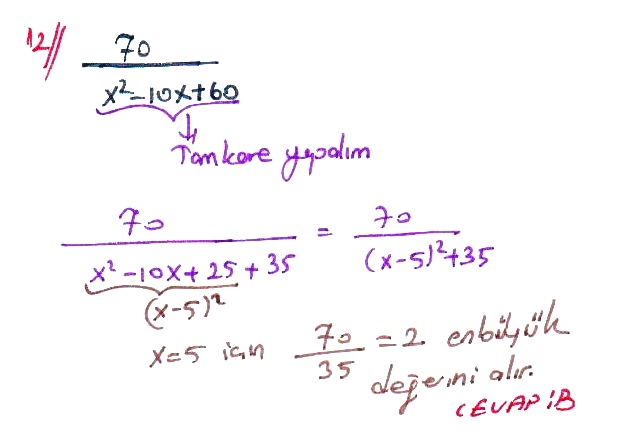 12//
70
x²-10x+60
Tamkare yapalım
70 / x²-10x+25+35 = 70 / (x-5)²+35
(x-5)²
x=5 için 70/35 = 2 enbüyük
değerini alır.
CEVAP:B